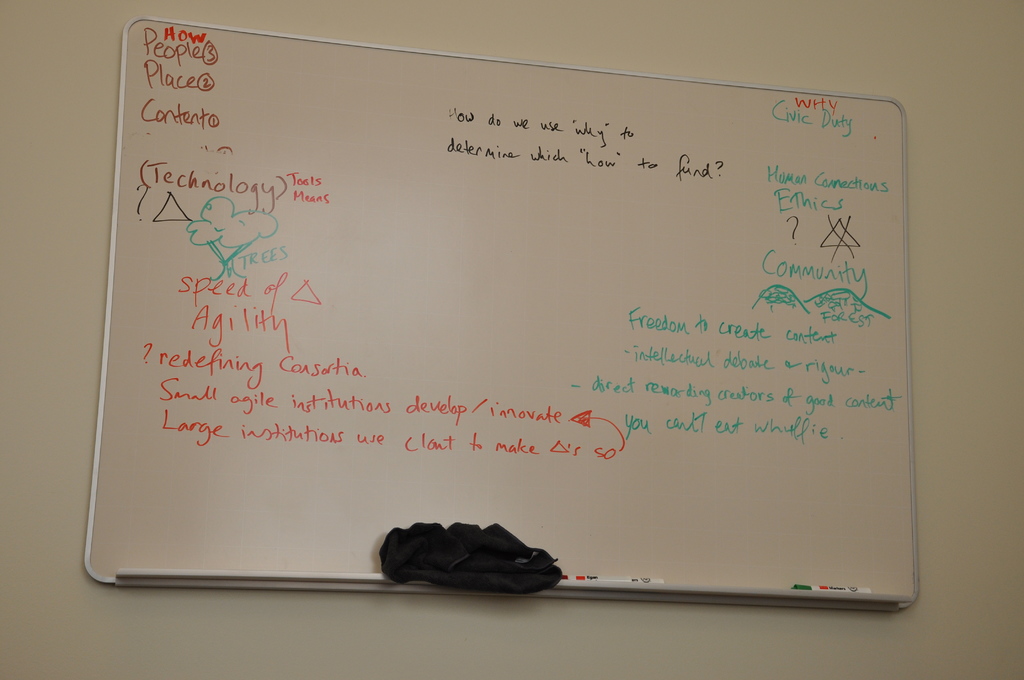 HOW
People ③
Place ②
Content ①
(Technology) Tools
Means
?
TREES
speed of △
Agility
? redefining Consortia.
Small agile institutions develop/innovate
Large institutions use clout to make △'s so
How do we use "why" to
determine which "how" to fund?
WHY
Civic Duty
Human Connections
Ethics
?
Community
FOREST
Freedom to create content
- intellectual debate & rigour -
- direct rewarding creators of good content
you can't eat whuffie.